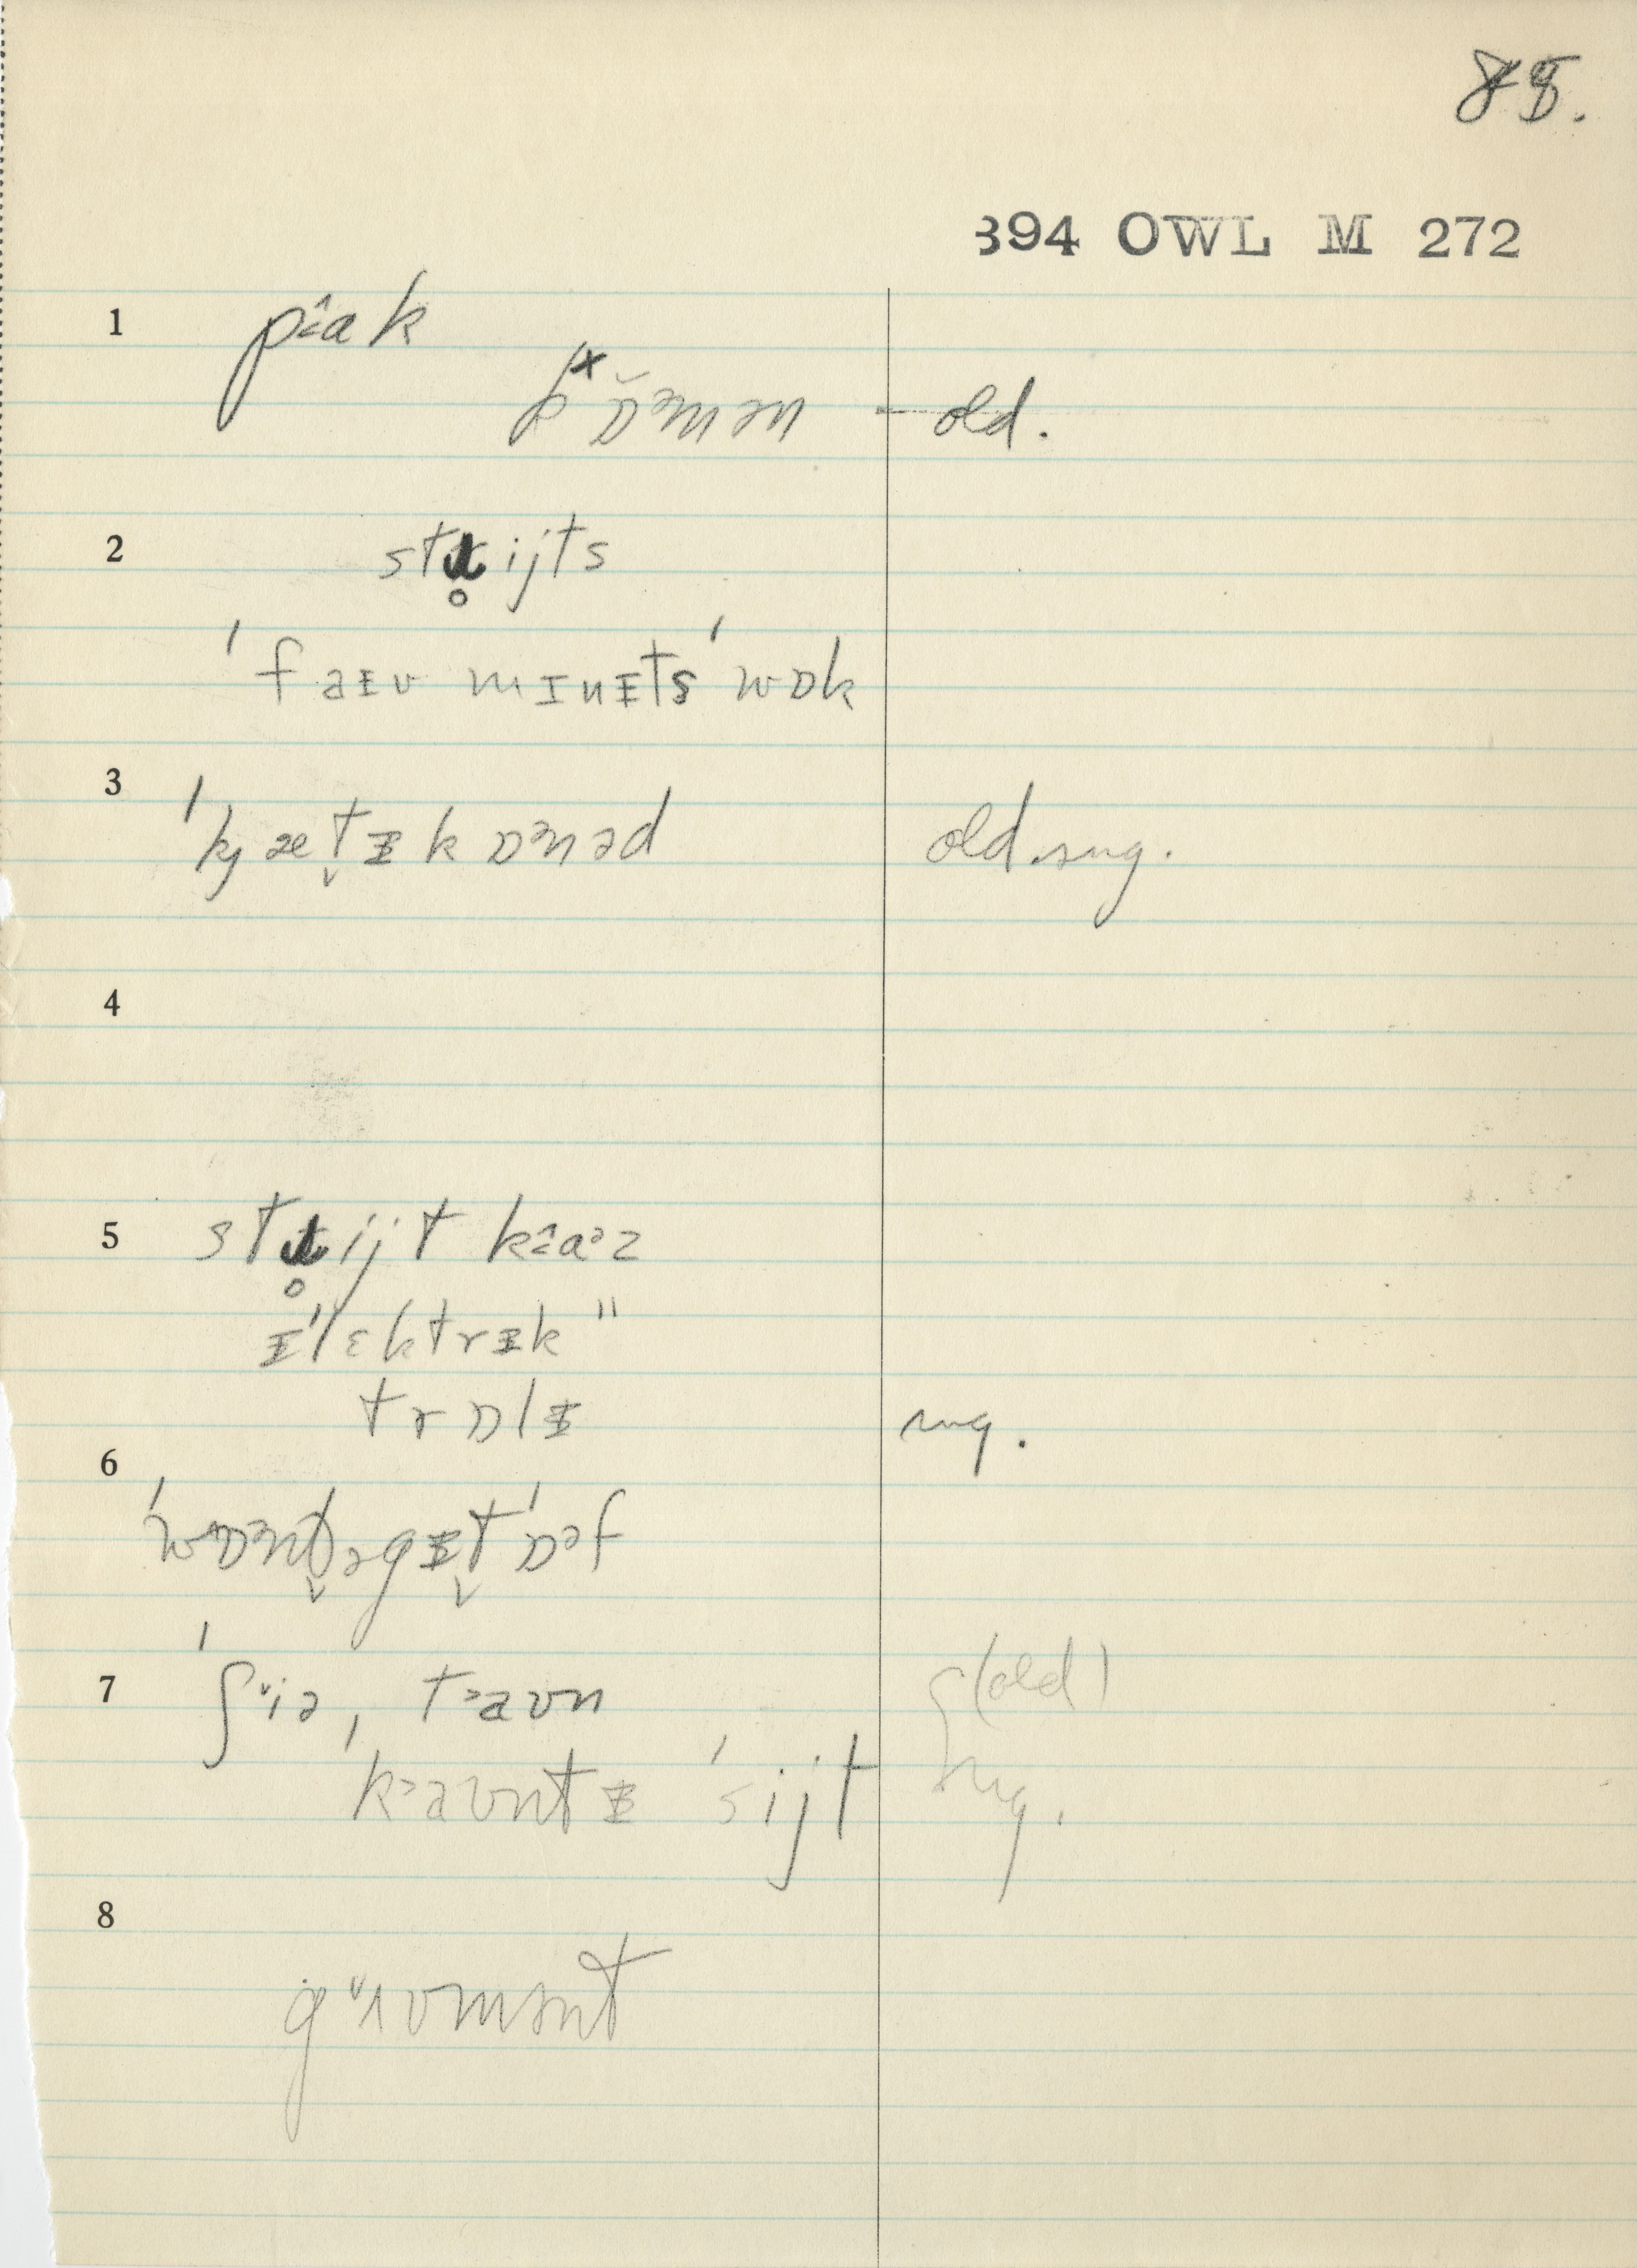 85.
394 OWL M 272
1 pɑk
kɒᵊmən - old.
2 stɹ̥ijts
ˈfaɪv mɪnɪts ˈwɒk
3 ˈkjæt̬ɪkɒᵊnəd old sug.
4
5 stɹ̥ijt kɑᵊz
ɪˈlɛktrɪk "
trɒlɪ sug.
6
ˈwɒᵊnt̬əgɪt̬ ˈɒᵊf
7 ˈʃiə, taʊn (old)
ˈkaʊntɪ ˈsijt sug.
8
gʌvmənt